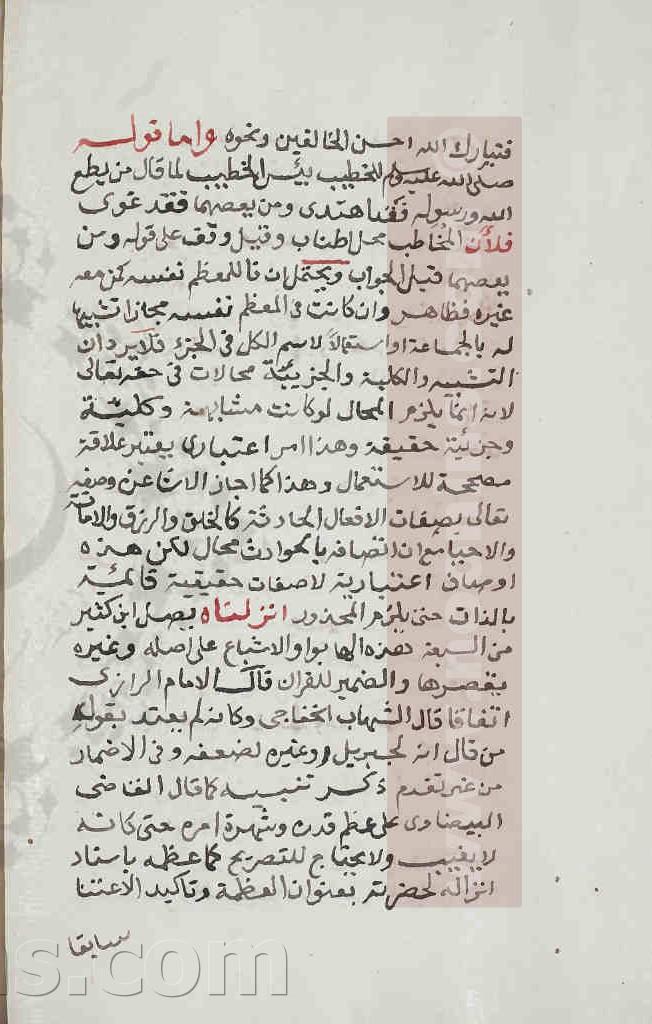 فتبارك الله احسن الخالقين ونحوه واما قوله
صلى الله عليه وسلم للخطيب بئس الخطيب لما قال من يطع
الله ورسوله فقد اهتدى ومن يعصهما فقد غوى
فلأن المخاطب محل اطناب وقيل وقف على قوله ومن
يعصهما قبل الجواب ويحتمل ان نا للمعظم نفسه كمن معه
غيره فظاهر وان كانت في المعظم نفسه مجازا تشبيها
له بالجماعة او استعمالا لاسم الكل في الجزئ فلا يرد ان
التشبيه والكلية والجزيية محالات في حقه تعالى
لانه انما يلزم المحال لو كانت مشابهة وكلية
وجزئية حقيقة وهذا امر اعتباري يعتبر علاقة
مصححة للاستعمال وهذا كما اجاز الاشاعرة وصفه
تعالى بصفات الافعال الحادثة كالخلق والرزق والاماتة
والاحيا مع ان اتصافه بالحوادث محال لكن هذه
اوصاف اعتبارية لا صفات حقيقية قائمة
بالذات حتى يلزم المحذور انزلناه يصل ابن كثير
من السبعة هذه الها بواو الاشباع على اصله وغيره
يقصرها والضمير للقران قال الامام الرازى
اتفاقا قال الشهاب الخفاجى وكانه لم يعتد بقول
من قال انه لجبريل او غيره لضعفه وفي الاضمار
من غير تقدم ذكر تنبيه كما قال القاضى
البيضاوى على عظم قدره وشهرة امره حتى كانه
لا يغيب ولا يحتاج للتصريح كما عظمه باسناد
انزاله لحضرته بعنوان العظمة وتاكيد الاعتنا
سابقا
s.com